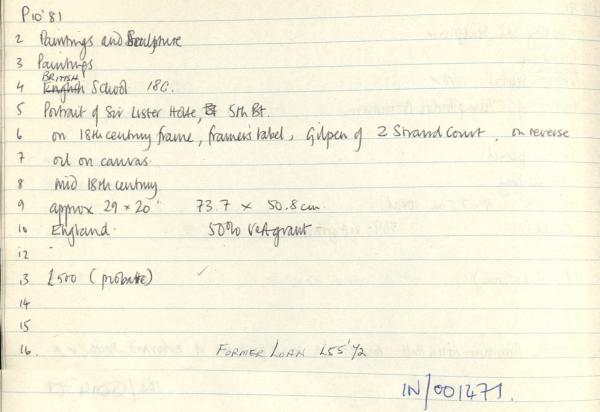 P10'81
2 Paintings and Sculpture
3 Paintings
BRITISH
4 English School 18C.
5 Portrait of Sir Lister Holte, 5th Bt.
6 on 18th century frame, framer's label, Gilpen of 2 Strand Court, on reverse
7 oil on canvas.
8 mid 18th century
9 approx 29 × 20" 73.7 × 50.8 cm
10 England. 50% V&A grant
12 -
13 £500 (probate) ✓
14
15
16. FORMER LOAN L55'72
IN/001471.